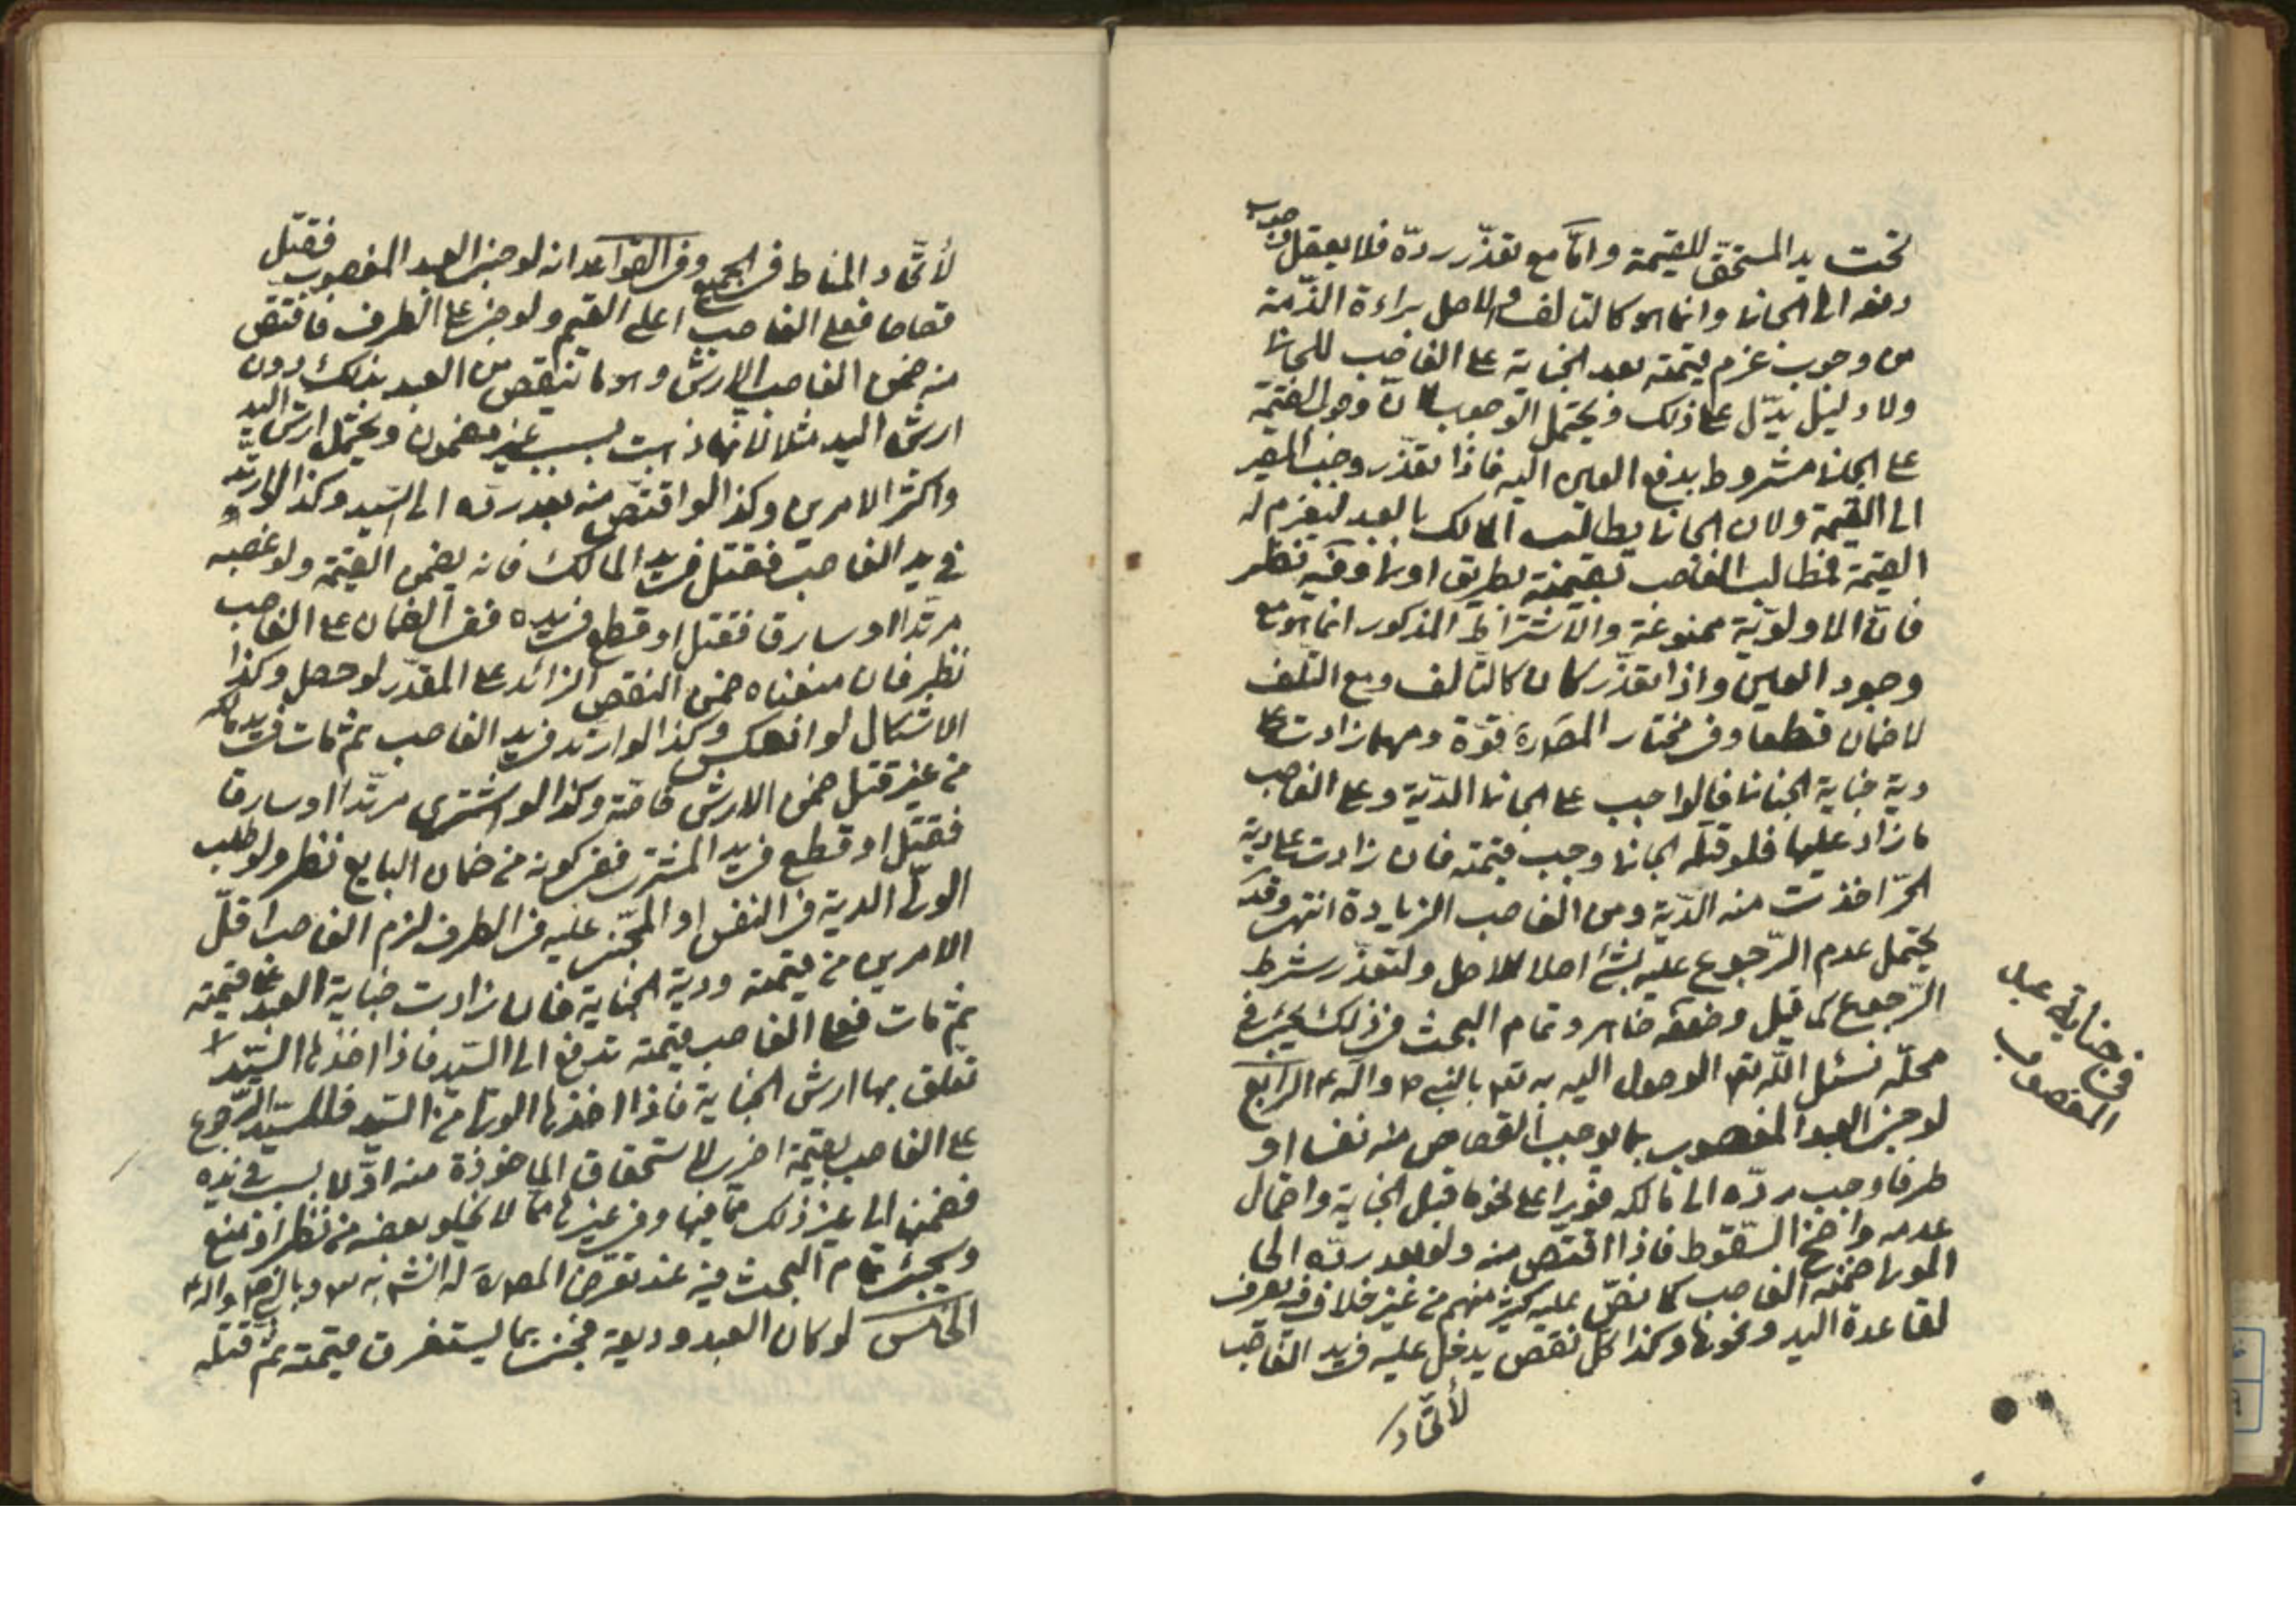 تحت يد المستحقّ للقيمة وامّا مع تعذّر ردّه فلا يعقل وجوب
دفعه الى الجانى وانما هو كالتالف والاصل براءة الذّمة
من وجوب غرم قيمته بعد الجناية على الغاصب للجانى
ولا دليل يدّل على ذلك ويحتمل الوجوب لانّ وجوب القيمة
على الجانى مشروط بدفع العين اليه فاذا تعذّر وجب المصير
الى القيمة ولان الجانى يطالب المالك بالعبد ليغرم له
القيمة فطالب الغاصب بقيمته بطريق اولى وفيه نظر
فانّ الاولويّة ممنوعة والاشتراط المذكور انما هو مع
وجود العين واذا تعذّر كان كالتالف ومع التلف
لا ضمان قطعا وفى مختار المصَ ره قوّة ومهما زادت على
دية جناية الجانى فالواجب على الجانى الدّية وعلى الغاصب
ما زاد عليها فلو قتله الجانى وجب قيمته فان زادت على دية
الحرّ اخذت منه الدّية ومن الغاصب الزيادة انتهى وقد
يحتمل عدم الرّجوع عليه بشئ اصلا للاصل ولتعذّر شرط
الرّجوع كما قيل وضعفه ظاهر وتمام البحث فى ذلك يجئ فى
محلّه نسئل اللّه تعـ الوصول اليه به تعـ بالنبى ص وآله ع الرابع
لو جنى العبد المغصوب بما يوجب القصاص منه نفسا او
طرفا وجب ردّه الى مالكه فورا على نحو ما قبل الجناية واحتمال
عدمه واضح السّقوط فاذا اقتصّ منه ولو بعد ردّه الى
المولى ضمنه الغاصب كما نصّ عليه كثير منهم من غير خلاف فيه يعرف
لقاعدة اليد ونحوها وكذا كلّ نقص يدخل عليه فى يد الغاصب
لأتّحاد
فى جناية عبد
المغصوب
لأتّحاد المناط فى الجميع وفى القواعد انه لو جنى العبد المغصوب فقتل
قصاصا فعلى الغاصب اعلى القيم ولو جنى على الطرف فاقتصّ
منه ضمن الغاصب الارش وهو ما ينقص من العبد بذلك دون
ارش اليد مثلا لانّها ذهبت بسبب غير مضمون ويحتمل ارش اليد
واكثر الامرين وكذا لو اقتصّ منه بعد ردّه الى السّيد وكذا لو ارتدّ
فى يد الغاصب فقتل فى يد المالك فانه يضمن القيمة ولو غصبه
مرتدّا او سارقا فقتل او قطع فى يده ففى الضمان على الغاصب
نظر فان منعناه ضمن النقص الزائد على المقدّر لو حصل وكذا
الاشكال لو انعكس وكذا لو ارتد فى يد الغاصب ثم مات فى يد مالكه
من غير قتل ضمن الارش خاصّة وكذا لو اشترى مرتدّا او سارقا
فقتل او قطع فى يد المشترى ففى كونه من ضمان البايع نظر ولو طلب
الولى الدية فى النفس او المجنى عليه فى الطرف لزم الغاصب اقلّ
الامرين من قيمته ودية الجناية فان زادت جناية العبد على قيمته
ثم مات فعلى الغاصب قيمته تدفع الى السّيد فاذا اخذها السّيد
تعلّق بها ارش الجناية فاذا اخذها الولى من السّيد فللسّيد الرّجوع
على الغاصب بقيمة اخرى لاستحقاق الماخوذة منه اوّلا بسبب فى يده
فضمنها الى غير ذلك ممّا فيها وفى غيرها ممّا لا يخلو بعضه من نظر او منع
ويجئ تمام البحث فيه عند تعرض المصَ ره له انشـ به سـ وبالنبى ص وآله ع
الخامس لو كان العبد وديعة فجنى بما يستغرق قيمته ثم قتله